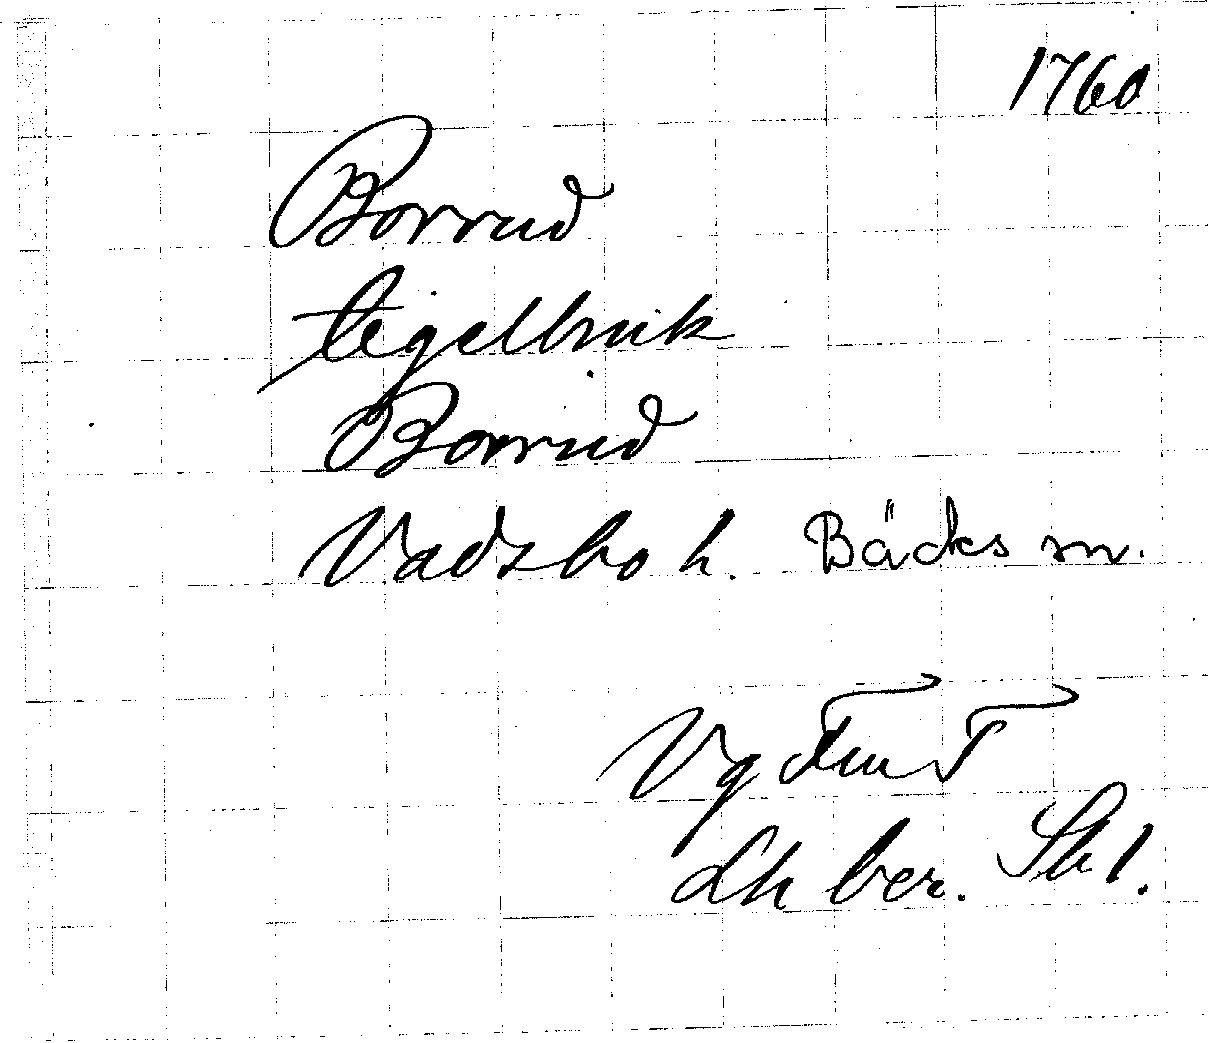 1760
Borrud
tegelbruk
Borrud
Vadsbo h. Bäcks sn.
Vg
Lh ber.